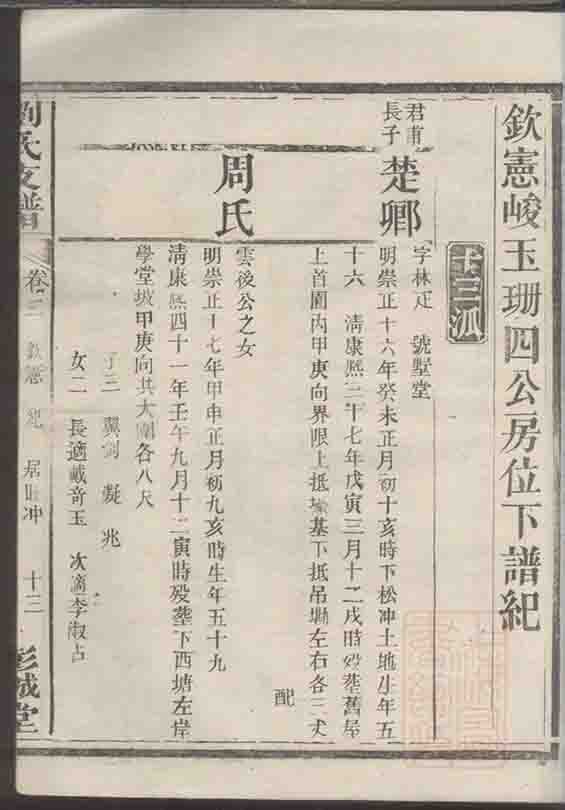 欽憲峻玉珊四公房位下譜紀
十三派
君甫長子
楚卿
字林疋 號墅堂
明崇正十六年癸未正月初十亥時下松冲土地生年五
十六 淸康熈三十七年戊寅三月十二戌時殁塟舊屋
上首園内甲庚向界限上抵墈基下抵吊墈左右各三丈
配
周氏
雲後公之女
明崇正十七年甲申正月初九亥時生年五十九
淸康熈四十一年壬午九月十二寅時殁塟下西塘左岸
學堂坡甲庚向共大圍各八尺
子三 翼 劍 凝 兆
女二 長適戴奇玉 次適李淑占
劉氏支譜
卷三 欽憲 紀 居 冲 十三
彭城堂